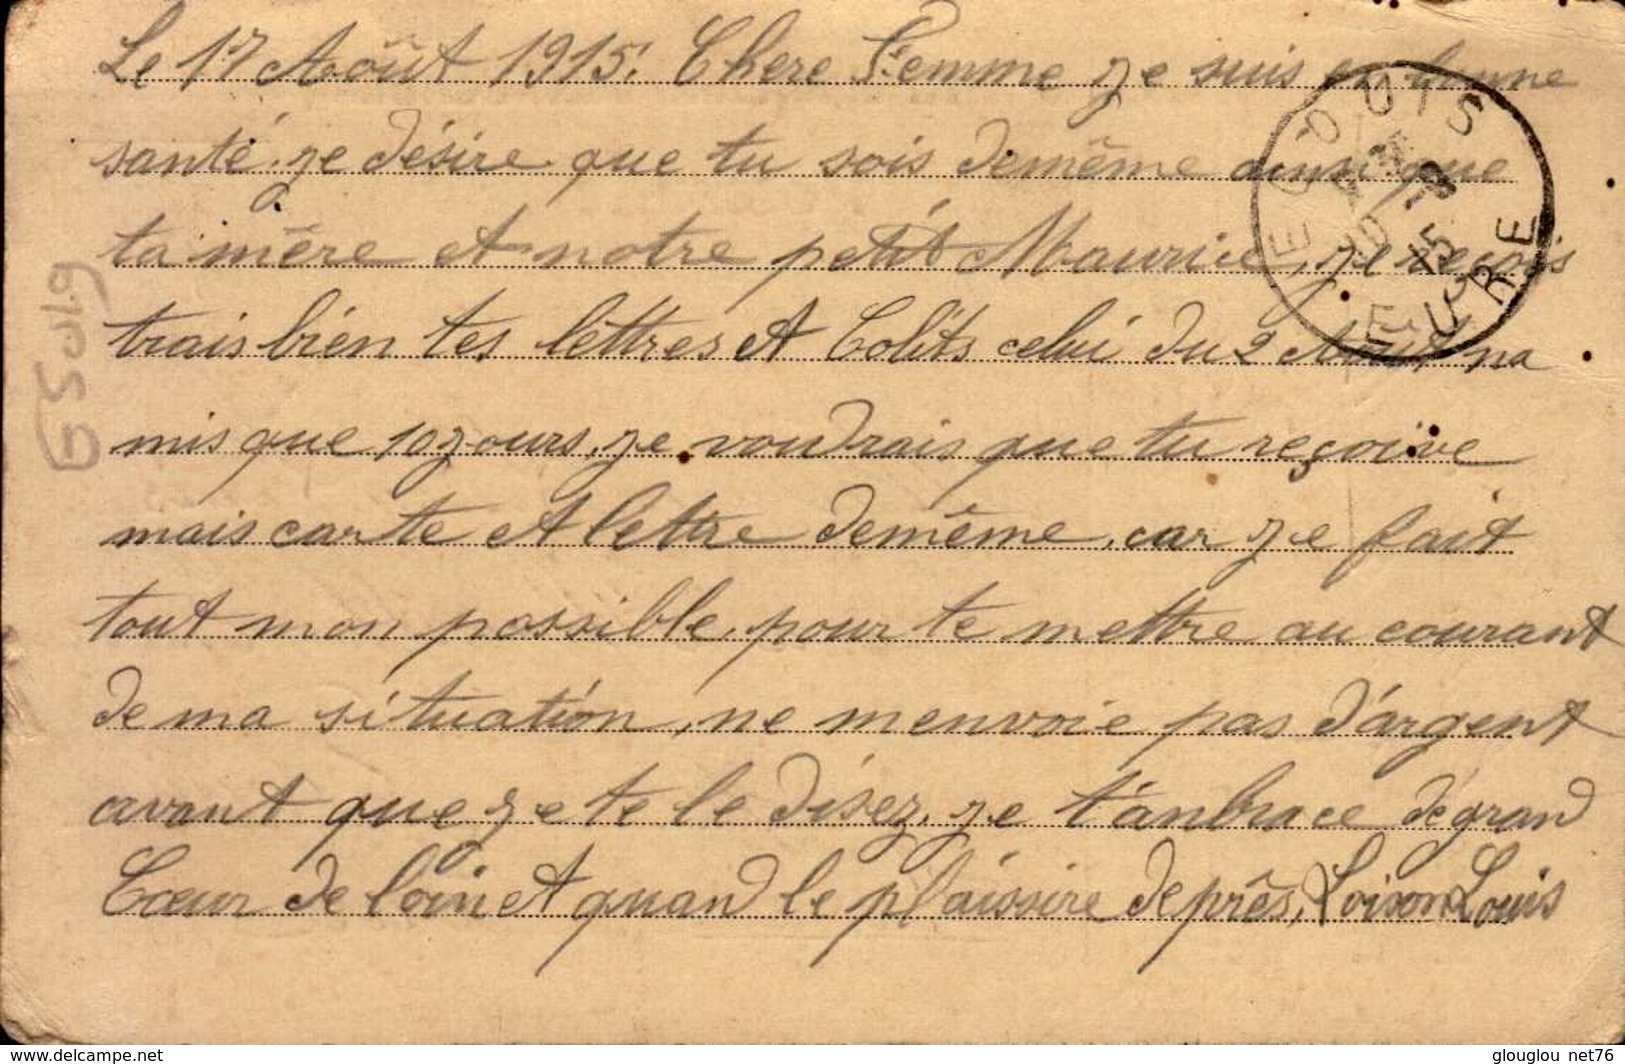 Le 17 Août 1915. Chere Femme je suis en bonne
santé. je désire que tu sois demême ainsi que
ta mère et notre petit Maurice, je reçois
trais bien tes lettres et Colits celui du 2 Août na
mis que 10 jours, je voudrais que tu reçoive
mais carte et lettre demême, car je fait
tout mon possible, pour te mettre au courant
de ma situation, ne menvoie pas d'argent
avant que je te le disez, je t'anbrace de grand
Cœur de loin et quand le plaissire de près, Loison Louis
ECOUIS
15
EURE
G5019
www.delcampe.net
glouglou net76